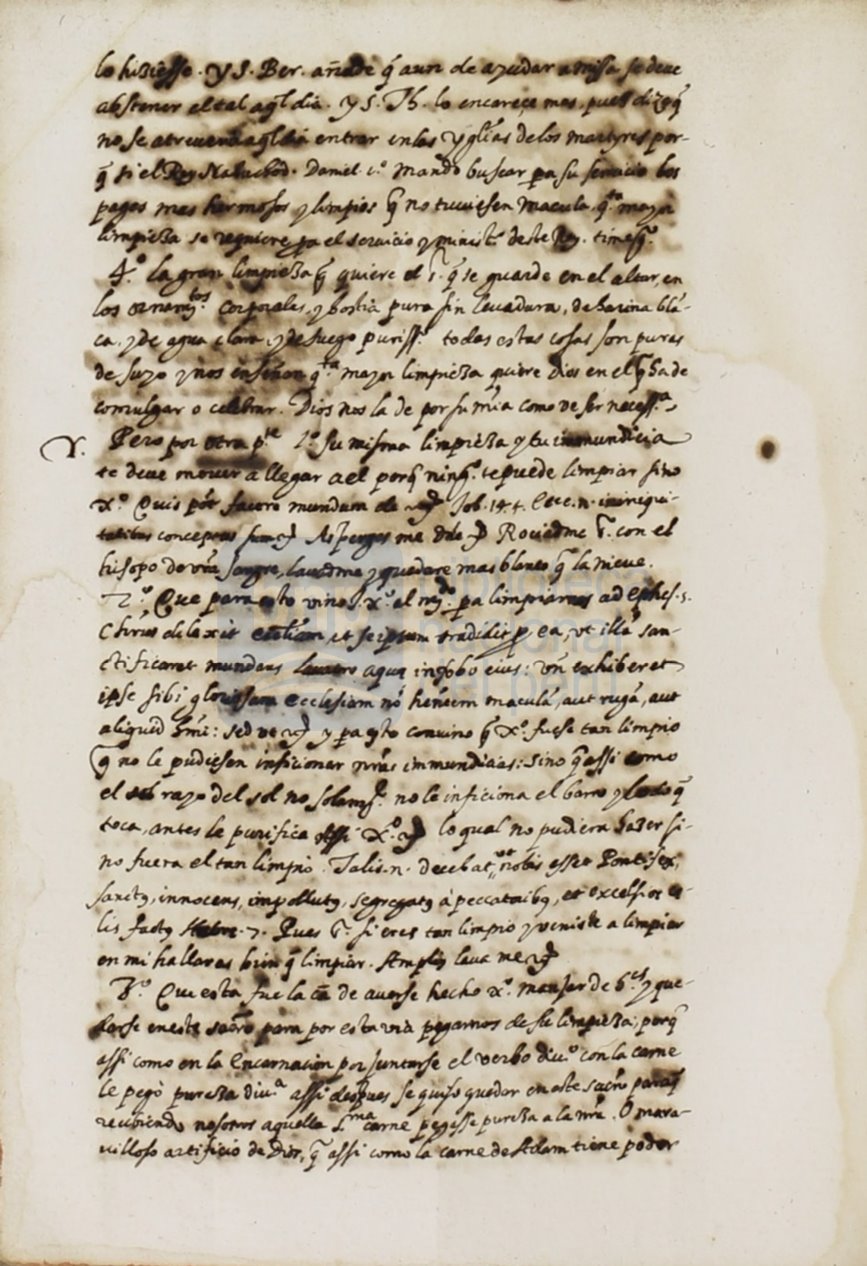 lo hiziesse. Y S. Ber. añade q̃ aun de ayudar a misa se deve
abstener el tal aq̃l dia. y S. Th. lo encareçe mas, pues dize q̃
no se atreva aq̃l dia entrar en las ygl̃ias de los martyres por-
q̃ si el Rey Nabuchod. Daniel 1.º mandò buscar pa su servicio los
pages mas hermosos y limpios q̃ no tuviesen macula, q.ta mayor
limpieza se requiere pa el servicio y minist.º deste Rey.
4.º la gran limpieza q̃ quiere el S.r q̃ se guarde en el altar, en
los ornam.tos corporales, y hostia pura sin levadura, de harina blã-
ca, y de agua clara, y de fuego puriss.º todas estas cosas son puras
de suyo y nos enseñan q.ta mayor limpieza quiere Dios en el q̃ ha de
comulgar o celebrar. Dios nos la de por su mĩa como ve ser necess.ª
Y. Pero por otra p.te 1.º su misma limpieza y tu inmundicia
te deve mover a llegar a el porq̃ ning.º te puede limpiar sino
X.º Quis põt facere mundum de Job. 14. 4. Ecce .n. in iniqui-
tatibus conceptus sum Asperges me Dñe Rociadme S.r con el
hisopo de vrã sangre, lavadme y quedare mas blanco q̃ la nieve.
2.º Que para esto vino X.º al mũdo pa limpiarnos ad Ephes. 5.
Chr̃us dilexit eccl̃iam, et seipsum tradidit p ea, ut illã san-
ctificaret mundans lavacro aquæ in verbo eius: ut exhiberet
ipse sibi gloriosam ecclesiam nõ hẽntem maculã, aut rugã, aut
aliquid hm̃oi: sed ut y pa esto convino q̃ X.º fuese tan limpio
q̃ no le pudiesen inficionar nr̃as immundicias: sino q̃ assi como
el rayo del sol no solam.te no le inficiona el barro y lodo q̃
toca, antes le purifica assi X.º lo qual no pudiera hazer si-
no fuera el tan limpio. Talis .n. decebat ut nobis esset Pontifex,
sanctus, innocens, impollutus, segregatus à peccatoribus, et excelsior cæ-
lis factus Hebre. 7. Pues S.r si eres tan limpio y veniste a limpiar
en mi hallaras bien q̃ limpiar. Amplius lava me
3.º Que esta fue la cã de averse hecho X.º manjar de y que-
darse en este sacrõ para por esta via pegarnos de su limpieza; porq̃
assi como en la Encarnacion por juntarse el verbo div.º con la carne
le pegò pureza div.ª assi despues se quiso quedar en este sacrõ paraq̃
recibiendo nosotros aquella S.ma carne pegasse pureza a la nr̃a. O mara-
villoso artificio de Dios, q̃ assi como la carne de Adam tiene poder